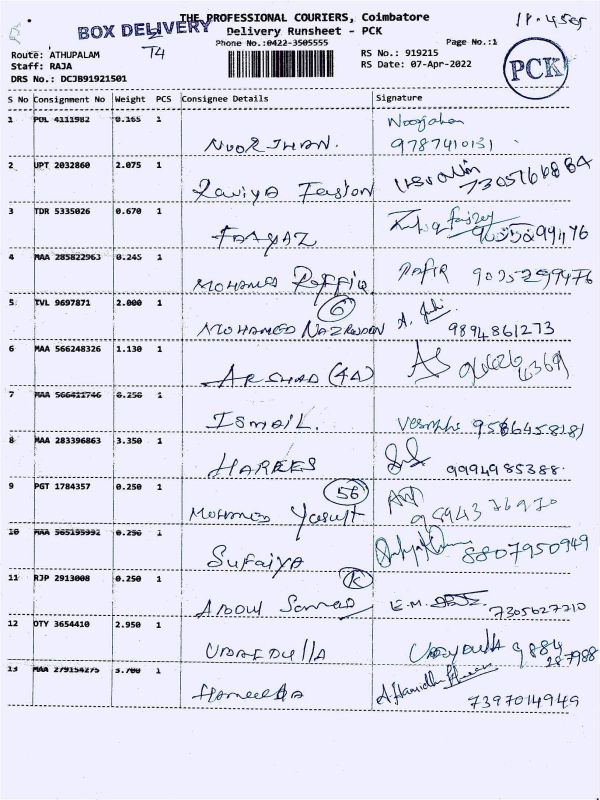 THE PROFESSIONAL COURIERS, Coimbatore
BOX DELIVERY
Delivery Runsheet - PCK
T4
Phone No.:0422-3505555
Page No.:1
Route: ATHUPALAM
RS No.: 919215
Staff: RAJA
RS Date: 07-Apr-2022
DRS No.: DCJB91921501
PCK
S No Consignment No Weight PCS Consignee Details Signature
1 POL 4111982 0.165 1 NOORJHAN. Noorjahan
9787410131
2 UPT 2032860 2.075 1
7305166884
3 TDR 5335026 0.670 1 FAAYAZ
4 MAA 285822963 0.245 1 MOHAMED Raffiq 9035299476
5 TVL 9697871 2.000 1 MOHAMED 9894861273
6
6 MAA 566248326 1.130 1 ARSHAD (4A)
7 MAA 566411746 0.250 1 ISMAIL. 9586458181
8 MAA 283396863 3.350 1 HAREES 9994985388
9 PGT 1784357 0.250 1 56
MOHAMED Yasuff
10 MAA 565195992 0.290 1 SUFAIYA 8807950949
11 RJP 2913008 0.250 1 K
ABDUL Samad E.M. 7305627210
12 OTY 3654410 2.950 1 UBAEDULLA 9884
287988
13 MAA 279154275 3.700 1 Hameeda
7397014949